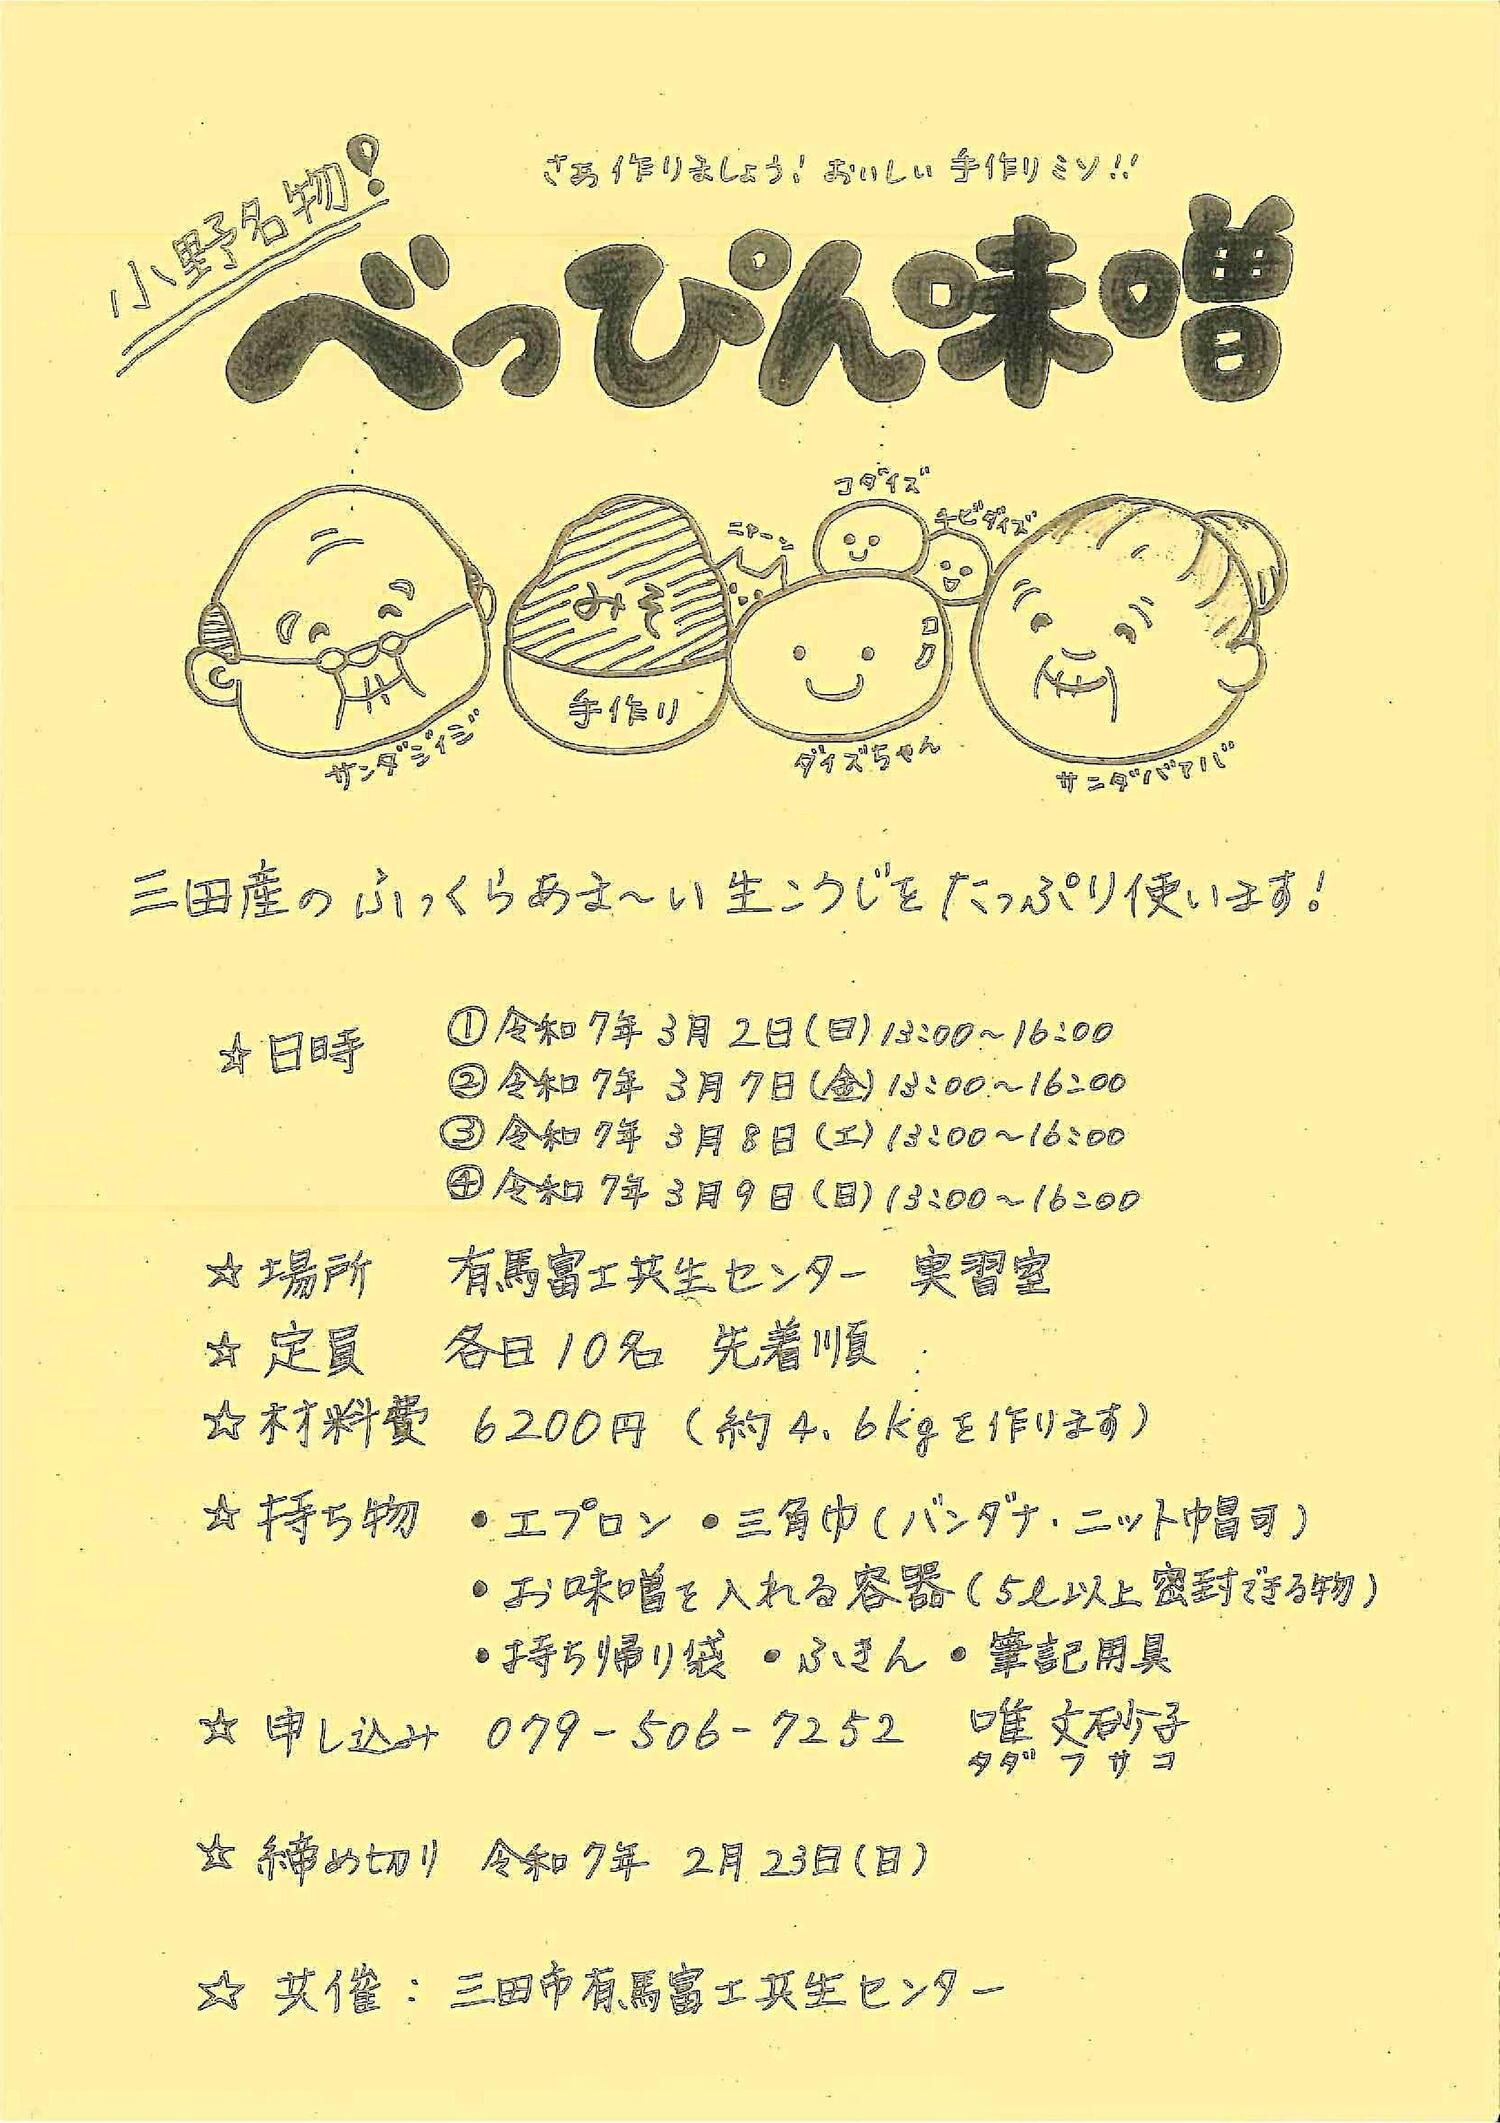 さあ作りましょう！おいしい手作りミソ！！
小野名物！
べっぴん味噌
コダイズ
チビダイズ
ニャーン
みそ
手作り
サンダジイジ
ダイズちゃん
サンダバアバ
三田産のふっくらあま〜い生こうじをたっぷり使います！
☆日時 ①令和7年3月2日(日)13:00〜16:00
②令和7年3月7日(金)13:00〜16:00
③令和7年3月8日(土)13:00〜16:00
④令和7年3月9日(日)13:00〜16:00
☆場所 有馬富士共生センター 実習室
☆定員 各日10名 先着順
☆材料費 6200円(約4.6kgを作ります)
☆持ち物 ・エプロン ・三角巾(バンダナ・ニット帽可)
・お味噌を入れる容器(5ℓ以上密封できる物)
・持ち帰り袋 ・ふきん ・筆記用具
☆申し込み 079-506-7252 唯 文砂子
タダ フサコ
☆締め切り 令和7年 2月23日(日)
☆共催：三田市有馬富士共生センター